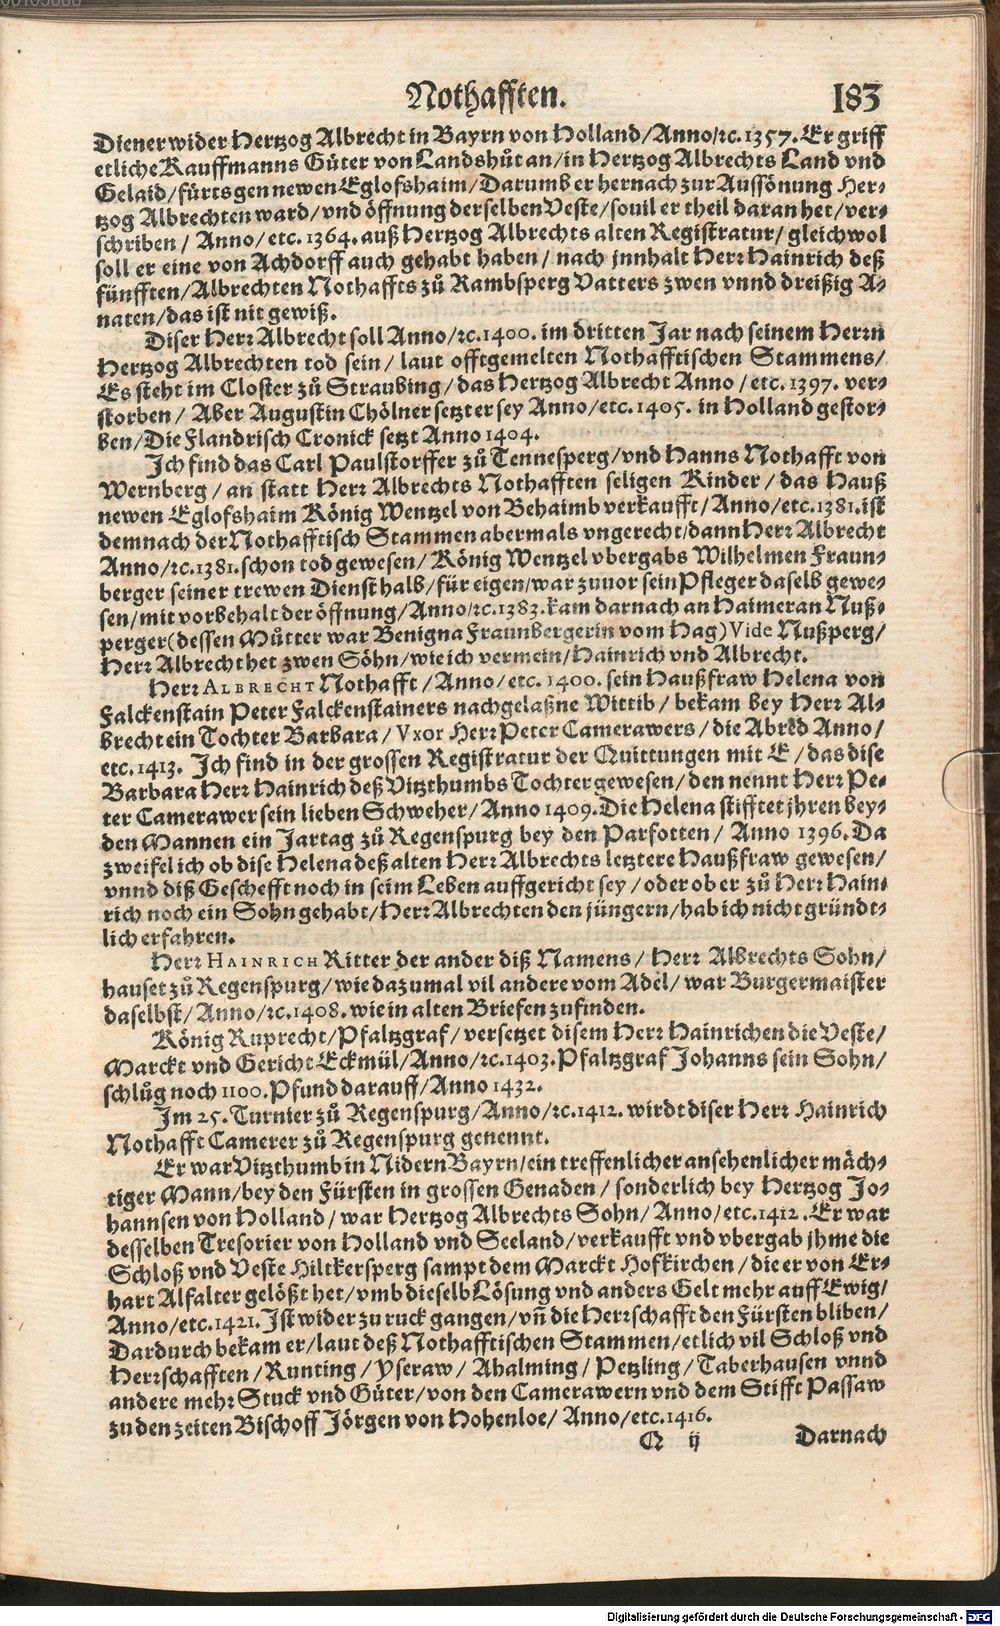 Nothafften. 183
Diener wider Hertzog Albrecht in Bayrn von Holland/Anno/ꝛc. 1357. Er griff
etliche Kauffmanns Güter von Landshůt an/in Hertzog Albrechts Land vnd
Gelaid/fürts gen newen Eglofshaim/Darumb er hernach zur Aussönung Her-
tzog Albrechten ward/vnd öffnung derselben Veste/souil er theil daran het/ver-
schriben/ Anno/etc. 1364. auß Hertzog Albrechts alten Registratur/gleichwol
soll er eine von Achdorff auch gehabt haben/ nach jnnhalt Herr Hainrich deß
fünfften/Albrechten Nothaffts zů Rambsperg Vatters zwen vnnd dreißig A-
naten/das ist nit gewiß.
Diser Herr Albrecht soll Anno/ꝛc. 1400. im dritten Jar nach seinem Herrn
Hertzog Albrechten tod sein/ laut offtgemelten Nothafftischen Stammens/
Es steht im Closter zů Straubing/das Hertzog Albrecht Anno/etc. 1397. ver-
storben/ Aber Augustin Chölner setzt er sey Anno/etc. 1405. in Holland gestor-
ben/Die Flandrisch Cronick setzt Anno 1404.
Ich find das Carl Paulstorffer zů Tennesperg/vnd Hanns Nothafft von
Wernberg/ an statt Herr Albrechts Nothafften seligen Kinder/das Hauß
newen Eglofshaim König Wentzel von Behaimb verkaufft/Anno/etc. 1381. ist
demnach der Nothafftisch Stammen abermals vngerecht/dann Herr Albrecht
Anno/ꝛc. 1381. schon tod gewesen/König Wentzel vbergabs Wilhelmen Fraun-
berger seiner trewen Dienst halb/für eigen/war zuuor sein Pfleger daselb gewe-
sen/mit vorbehalt der öffnung/Anno/ꝛc. 1383. kam darnach an Haimeran Nuß-
perger (dessen Můtter war Benigna Fraunbergerin vom Hag) Vide Nußperg/
Herr Albrecht het zwen Söhn/wie ich vermein/Hainrich vnd Albrecht.
Herr ALBRECHT Nothafft/Anno/etc. 1400. sein Haußfraw Helena von
Falckenstain Peter Falckenstainers nachgelaßne Wittib/ bekam bey Herr Al-
brecht ein Tochter Barbara/Vxor Herr Peter Camerawers/die Abred Anno/
etc. 1413. Ich find in der grossen Registratur der Quittungen mit E/das dise
Barbara Herr Hainrich deß Vitzthumbs Tochter gewesen/den nennt Herr Pe-
ter Camerawer sein lieben Schweher/Anno 1409. Die Helena stifftet jhren bey-
den Mannen ein Jartag zů Regenspurg bey den Parfotten/ Anno 1396. Da
zweifel ich ob dise Helena deß alten Herr Albrechts letztere Haußfraw gewesen/
vnnd diß Geschefft noch in seim Leben auffgericht sey/oder ob er zů Herr Hain-
rich noch ein Sohn gehabt/Herr Albrechten den jüngern/hab ich nicht gründt-
lich erfahren.
Herr HAINRICH Ritter der ander diß Namens/ Herr Albrechts Sohn/
hauset zů Regenspurg/wie dazumal vil andere vom Adel/war Burgermaister
daselbst/Anno/ꝛc. 1408. wie in alten Briefen zufinden.
König Ruprecht/Pfaltzgraf/ versetzet disem Herr Hainrichen die Veste/
Marckt vnd Gericht Eckmül/Anno/ꝛc. 1403. Pfaltzgraf Johanns sein Sohn/
schlůg noch 1100. Pfund darauff/Anno 1432.
Im 25. Turnier zů Regenspurg/Anno/ꝛc. 1412. wirdt diser Herr Hainrich
Nothafft Camerer zů Regenspurg genennt.
Er war Vitzthumb in Nidern Bayrn/ein treffenlicher ansehenlicher mäch-
tiger Mann/bey den Fürsten in grossen Genaden/ sonderlich bey Hertzog Jo-
hannsen von Holland/war Hertzog Albrechts Sohn/Anno/etc. 1412. Er war
desselben Tresorier von Holland vnd Seeland/verkaufft vnd vbergab jhme die
Schloß vnd Veste Hiltkersperg sampt dem Marckt Hofkirchen/die er von Er-
hart Alfalter gelößt het/vmb dieselb Lösung vnd anders Gelt mehr auff Ewig/
Anno/etc. 1421. Ist wider zu ruck gangen/vñ die Herrschafft den Fürsten bliben/
Dardurch bekam er/laut deß Nothafftischen Stammen/etlich vil Schloß vnd
Herrschafften/Runting/Yseraw/ Ahalming/ Petzling/ Taberhausen vnnd
andere mehr Stuck vnd Güter/von den Camerawern vnd dem Stifft Passaw
zu den zeiten Bischoff Jörgen von Hohenloe/ Anno/etc. 1416.
Q ij Darnach
Digitalisierung gefördert durch die Deutsche Forschungsgemeinschaft - DFG